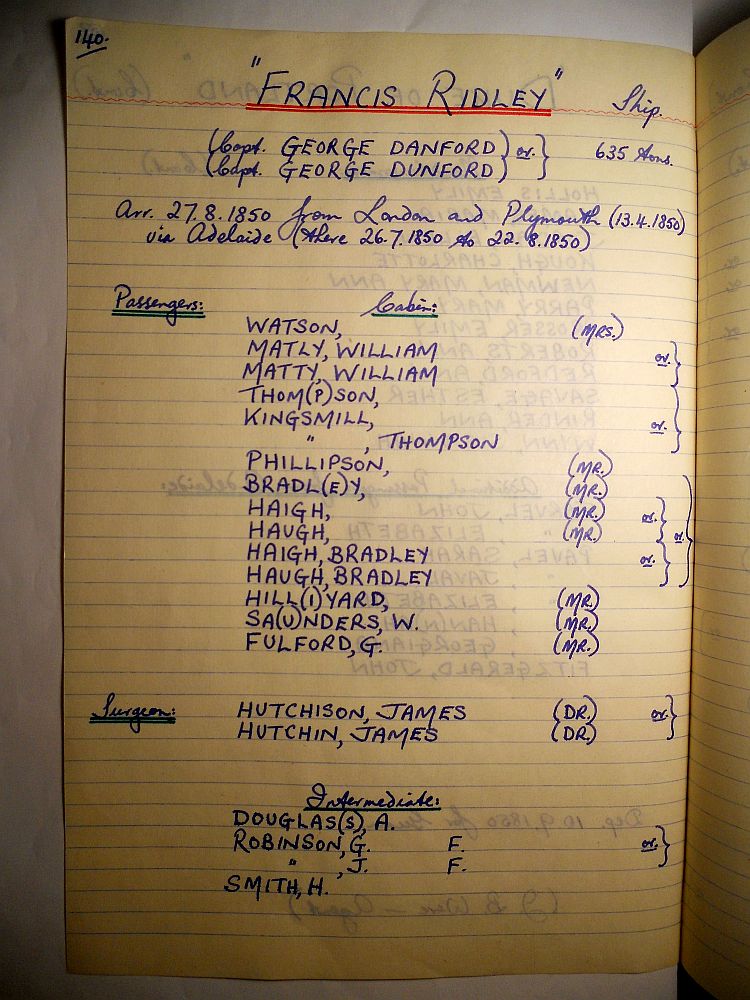 140.
"FRANCIS RIDLEY" Ship.
(Capt. GEORGE DANFORD) or. } 635 tons.
(Capt. GEORGE DUNFORD)
Arr. 27.8.1850 from London and Plymouth (13.4.1850)
via Adelaide (there 26.7.1850 to 22.8.1850)
Passengers: Cabin:
WATSON, (MRS.)
MATLY, WILLIAM or. }
MATTY, WILLIAM
THOM(P)SON,
KINGSMILL, or. }
" , THOMPSON
PHILLIPSON, (MR.)
BRADL(E)Y, (MR.)
HAIGH, (MR.) or. }
HAUGH, (MR.) or. }
HAIGH, BRADLEY or. }
HAUGH, BRADLEY
HILL(I)YARD, (MR.)
SA(U)NDERS, W. (MR.)
FULFORD, G. (MR.)
Surgeon: HUTCHISON, JAMES (DR.) or. }
HUTCHIN, JAMES (DR.)
Intermediate:
DOUGLAS(S), A.
ROBINSON, G. F. or. }
" , J. F.
SMITH, H.